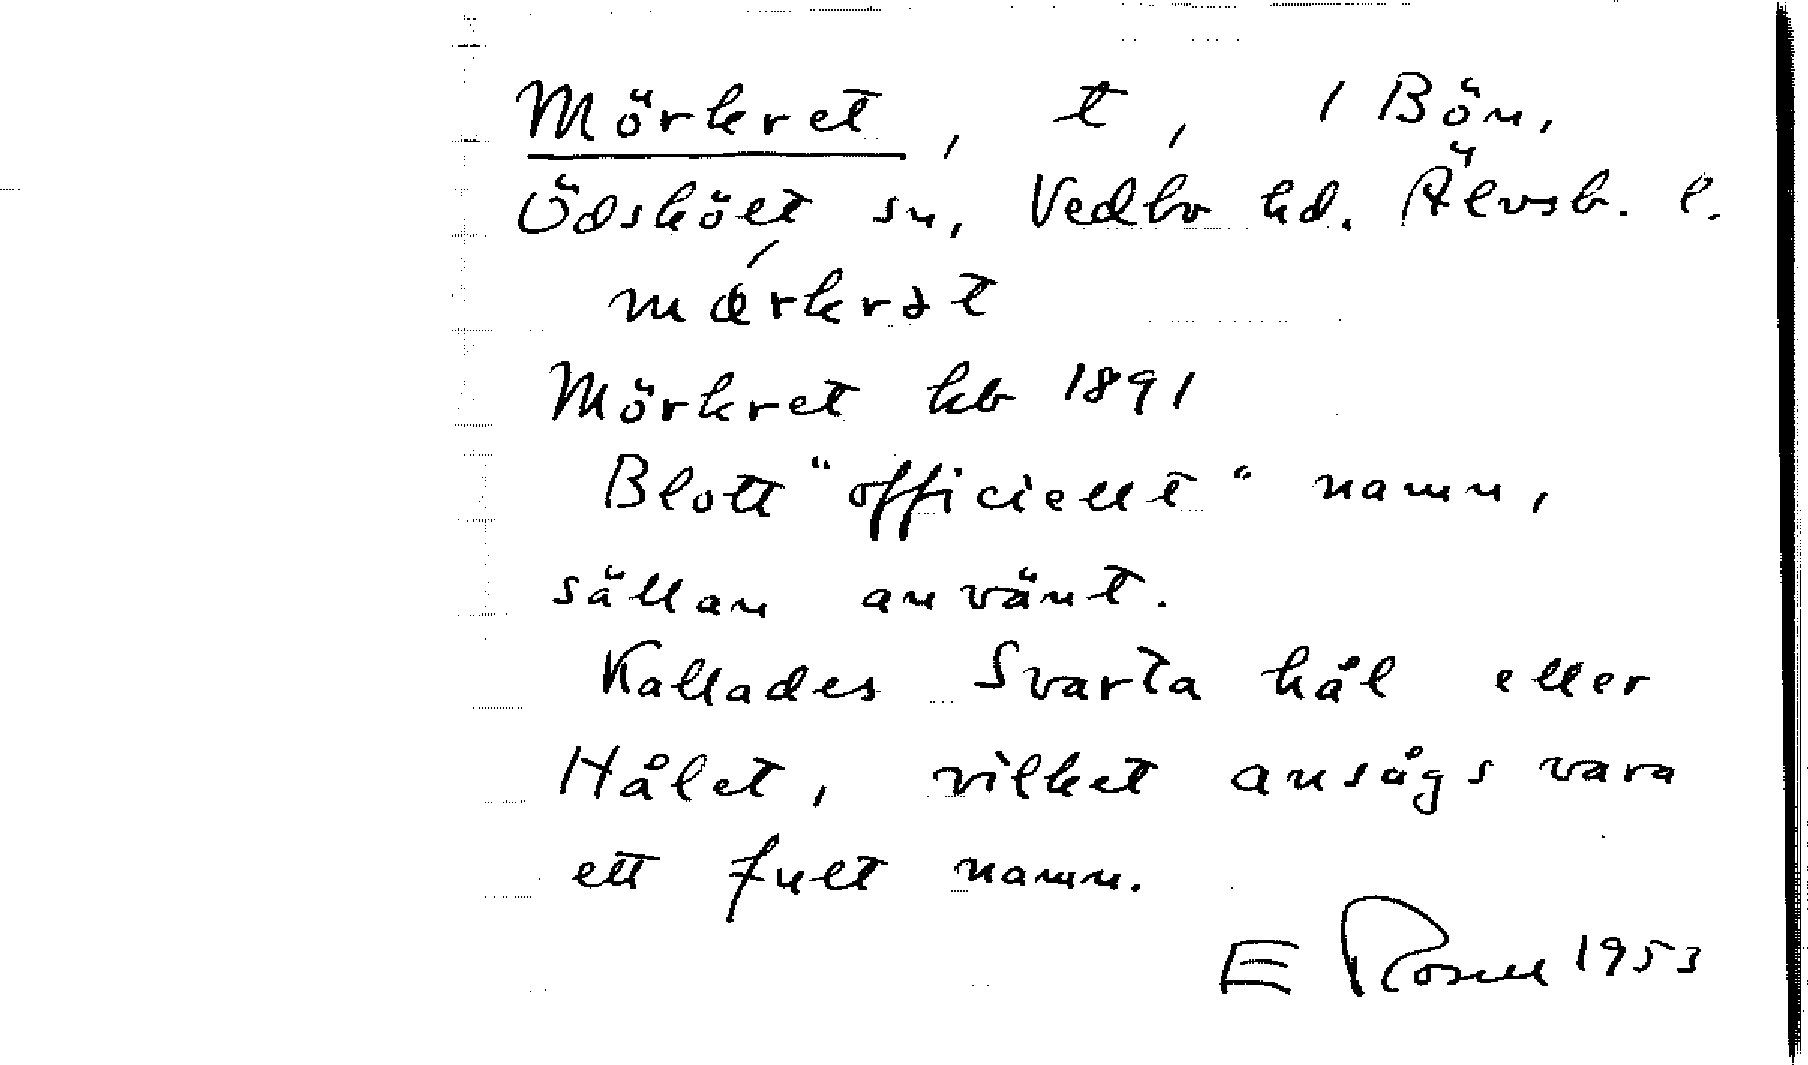 Mörkret, t, 1 Bön,
Ödskölt sn, Vedbo hd. Älvsb. l.
Mörkret kb 1891
Blott "officiellt" namn,
sällan använt.
Kallades Svarta hål eller
Hålet, vilket ansågs vara
ett fult namn.
E Rosell 1953